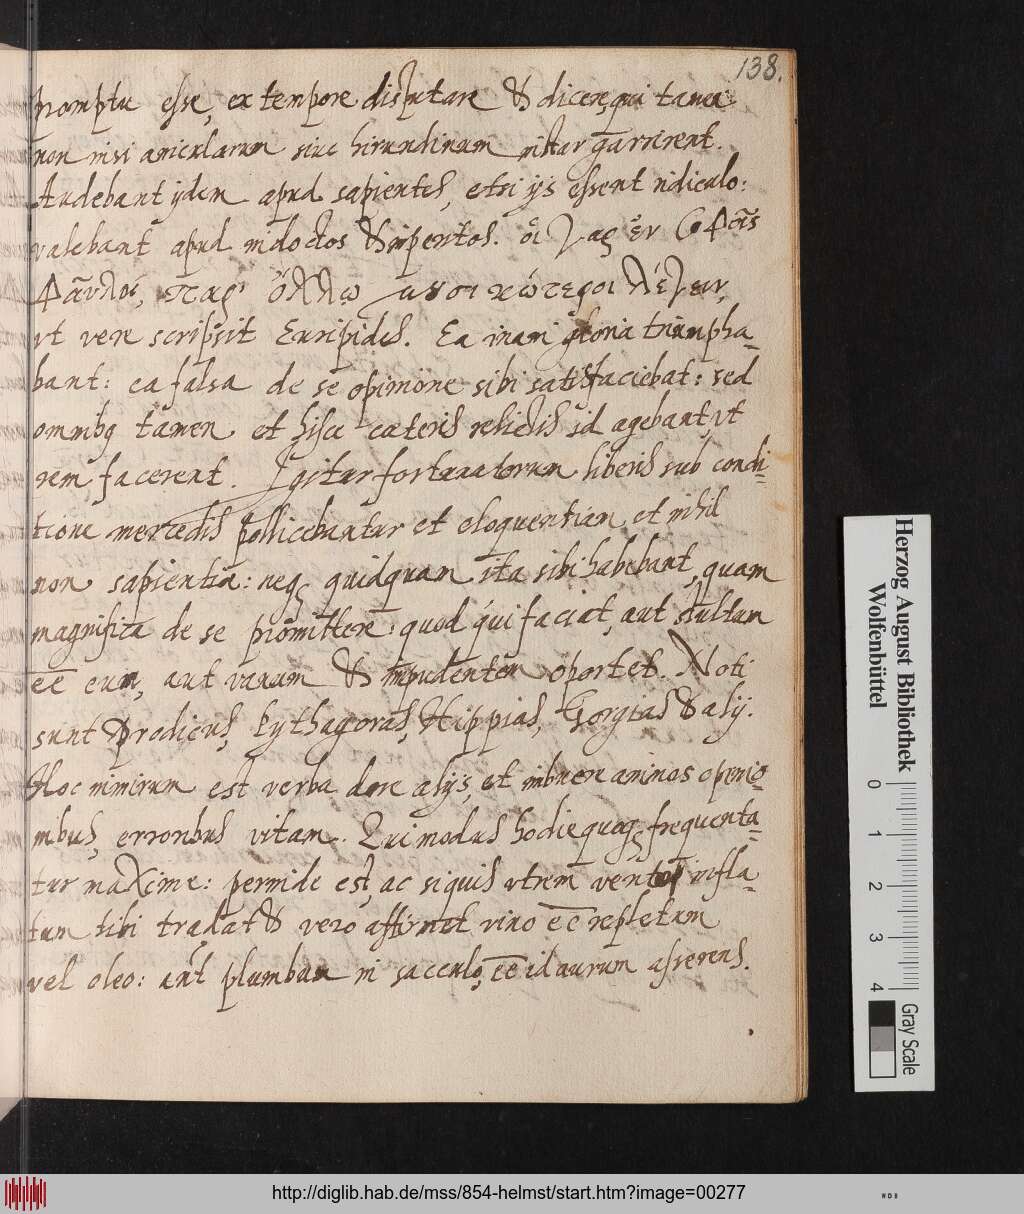 138.
promptu esse, ex tempore disputare & dicere, qui tamen
non nisi anicularum siue hirundinum instar garrirent.
Audebant ijdem apud sapientes, etsi ijs essent ridiculo:
valebant apud indoctos & imperitos. οἱ γὰρ ἐν σοφοῖς
φαῦλοι, παρ' ὄχλῳ μουσικώτεροι λέγειν,
vt vere scripsit Euripides. Ea inani gloria triumpha-
bant: ea falsa de se opinione sibi satisfaciebat: sed
omnibꝫ tamen et hisce cæteris relictis id agebant, vt
rem facerent. Igitur fortunatorum liberis sub condi-
tione mercedis pollicebantur et eloquentiam et nihil
non sapientiæ: neqꝫ quidquam ita sibi habebant, quam
magnifice de se promittere: quod qui faciat, aut stultum
ēē eum, aut vanum & impudentem oportet. Noti
sunt Prodicus, Pythagoras, Hippias, Gorgias & alij.
Hoc nimirum est verba dare alijs, et imbuere animos opinio-
nibus, erroribus vitam. Qui modus hodie quoqꝫ frequenta-
tur maxime: perinde est, ac siquis vtrem vento infla-
tum tibi tradat & vero affirmet vino ēē repletum
vel oleo: aut plumbum in sacculo, ēē id aurum asserens.
Herzog August Bibliothek
Wolfenbüttel
0 1 2 3 4
Gray Scale
http://diglib.hab.de/mss/854-helmst/start.htm?image=00277
WDB